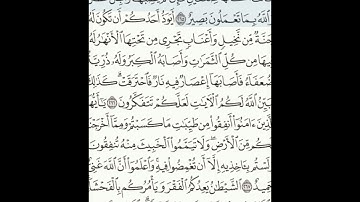 ٱللَّهُ بِمَا تَعْمَلُونَ بَصِيرٌ ٢٦٥ أَيَوَدُّ أَحَدُكُمْ أَن تَكُونَ لَهُۥ
جَنَّةٌ مِّن نَّخِيلٍ وَأَعْنَابٍ تَجْرِى مِن تَحْتِهَا ٱلْأَنْهَـٰرُ لَهُۥ
فِيهَا مِن كُلِّ ٱلثَّمَرَٰتِ وَأَصَابَهُ ٱلْكِبَرُ وَلَهُۥ ذُرِّيَّةٌ
ضُعَفَآءُ فَأَصَابَهَآ إِعْصَارٌ فِيهِ نَارٌ فَٱحْتَرَقَتْ ۗ كَذَٰلِكَ
يُبَيِّنُ ٱللَّهُ لَكُمُ ٱلْـَٔايَـٰتِ لَعَلَّكُمْ تَتَفَكَّرُونَ ٢٦٦ يَـٰٓأَيُّهَا
ٱلَّذِينَ ءَامَنُوٓا۟ أَنفِقُوا۟ مِن طَيِّبَـٰتِ مَا كَسَبْتُمْ وَمِمَّآ أَخْرَجْنَا
لَكُم مِّنَ ٱلْأَرْضِ ۖ وَلَا تَيَمَّمُوا۟ ٱلْخَبِيثَ مِنْهُ تُنفِقُونَ
وَلَسْتُم بِـَٔاخِذِيهِ إِلَّآ أَن تُغْمِضُوا۟ فِيهِ ۚ وَٱعْلَمُوٓا۟ أَنَّ ٱللَّهَ غَنِىٌّ
حَمِيدٌ ٢٦٧ ٱلشَّيْطَـٰنُ يَعِدُكُمُ ٱلْفَقْرَ وَيَأْمُرُكُم بِٱلْفَحْشَآءِ